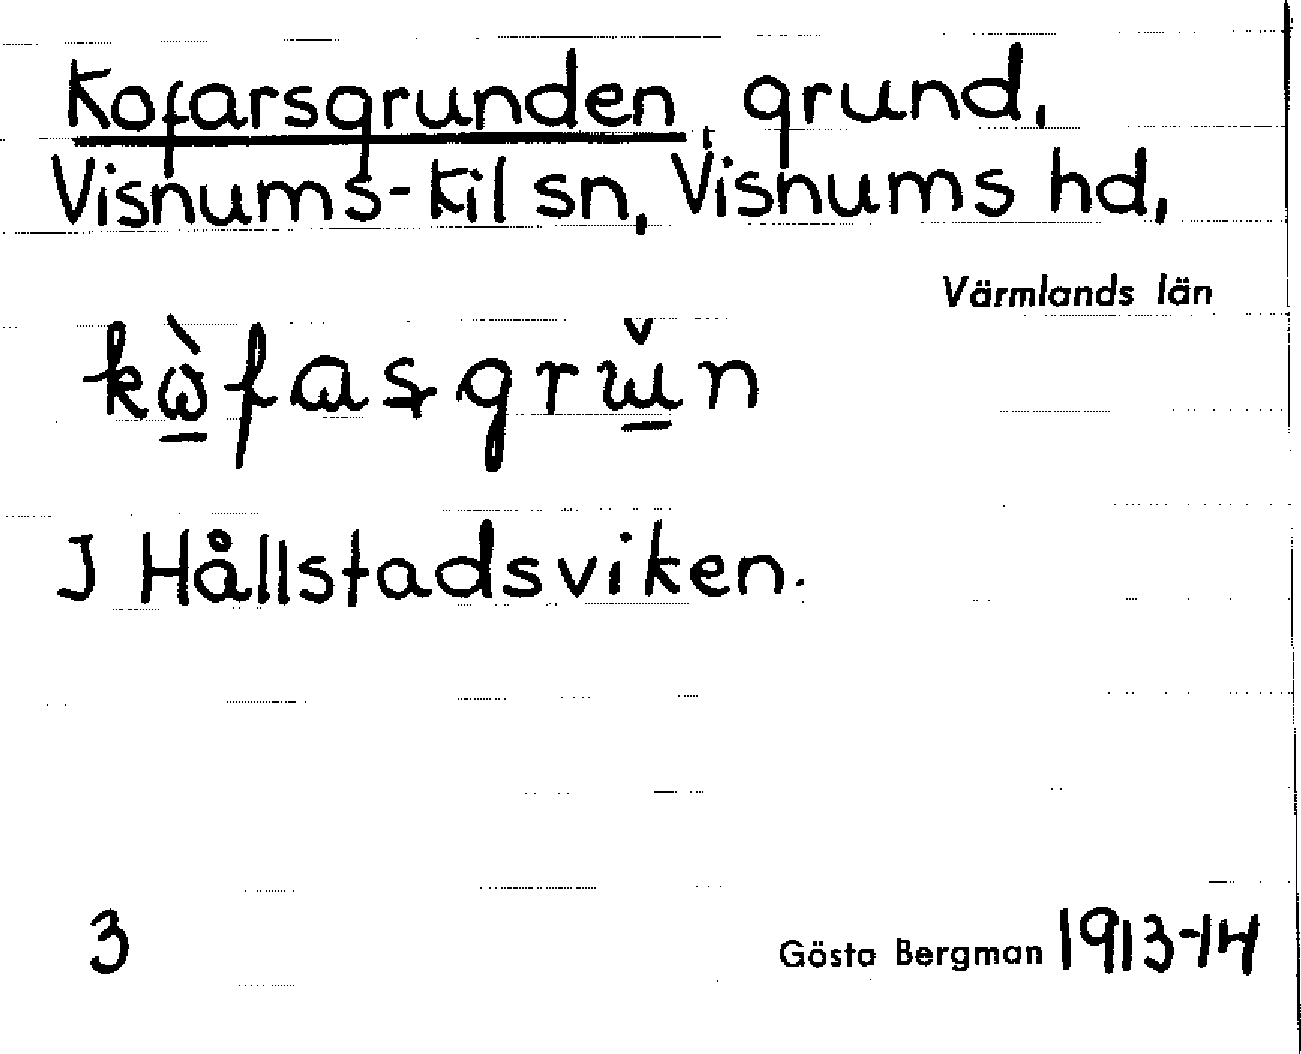 Kofarsgrunden, grund,
Visnums-Kil sn, Visnums hd,
Värmlands län
kὼ̲fasgrɯ̲̌n
I Hållstadsviken.
3
Gösta Bergman 1913-14